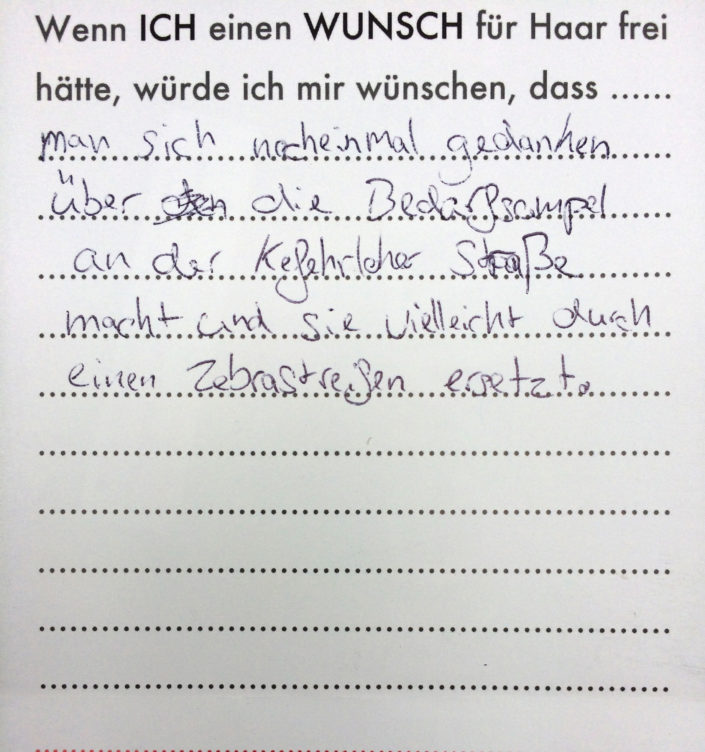 Wenn ICH einen WUNSCH für Haar frei
hätte, würde ich mir wünschen, dass ......
man sich nocheinmal gedanken
über die Bedarfsampel
an der Keferloher Straße
macht und sie vielleicht durch
einen Zebrastreifen ersetzt.